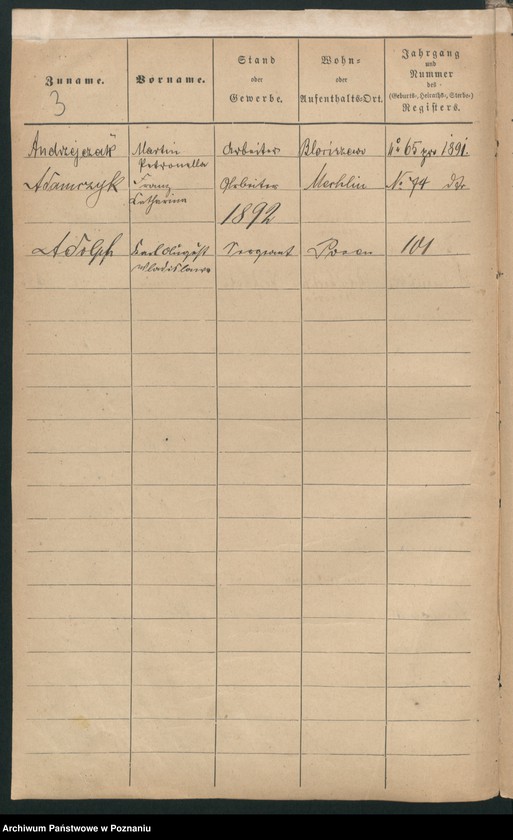 Zuname.
3
Vorname.
Stand
oder
Gewerbe.
Wohn-
oder
Aufenthalts-Ort.
Jahrgang
und
Nummer
des
(Geburts-, Heiraths-, Sterbe-)
Registers.
Andrzejczak Martin Arbeiter Blociszewo No 65 pro 1891.
Petronella
Adamczyk Franz Arbeiter Mechlin No 74 dto
Catharina
1892
Adolph Karl August Sergeant Posen 101
Wladislawa
Archiwum Państwowe w Poznaniu